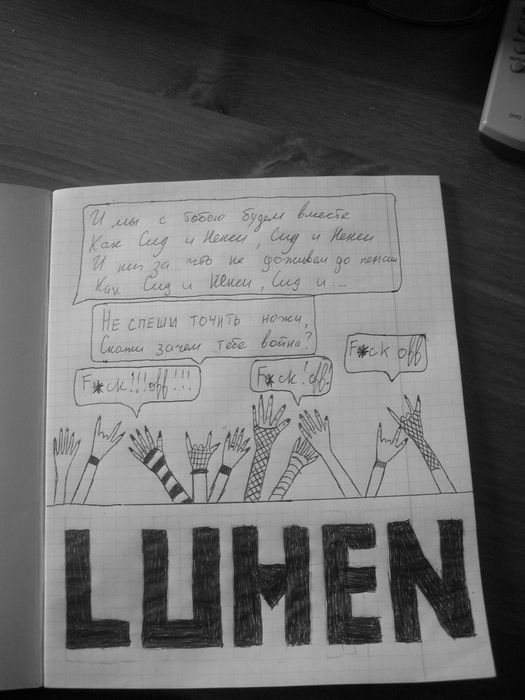 И мы с тобою будем вместе
Как Сид и Ненси, Сид и Ненси
И ни за что не доживём до пенсии
Как Сид и Ненси, Сид и...
Не спеши точить ножи,
Скажи зачем тебе война?
F*ck off
F*ck!off!
F*ck!!!off!!!
LUMEN
DVD